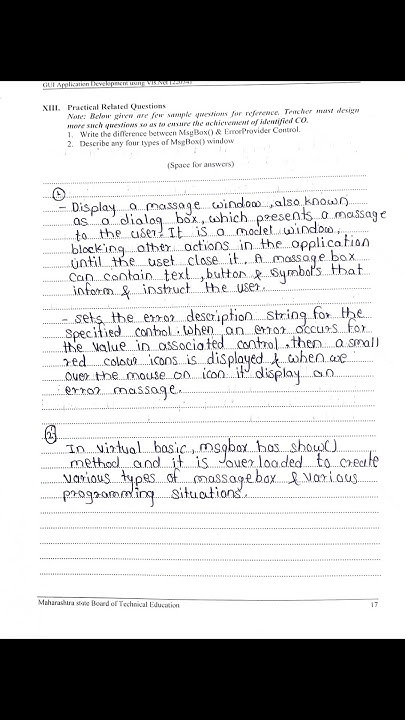 GUI Application Development using VB.Net (22034)
XIII. Practical Related Questions
Note: Below given are few sample questions for reference. Teacher must design
more such questions so as to ensure the achievement of identified CO.
1. Write the difference between MsgBox() & ErrorProvider Control.
2. Describe any four types of MsgBox() window
(Space for answers)
1
- Display a massage window, also known
as a dialog box, which presents a massage
to the user. It is a model window,
blocking other actions in the application
until the uset close it. A massage box
can contain text, button & symbols that
inform & instruct the user.
- sets the error description string for the
specified control. when an error occurs for
the value in associated control. then a small
red colour icons is displayed & when we
over the mouse on icon it display an
error massage.
2
In virtual basic, msgbox has show()
method and it is overloaded to create
various types of massagebox & various
programming situations.
Maharashtra state Board of Technical Education 17